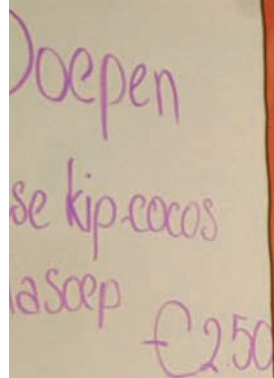 Soepen
se kip-cocos
asoep
€2.50